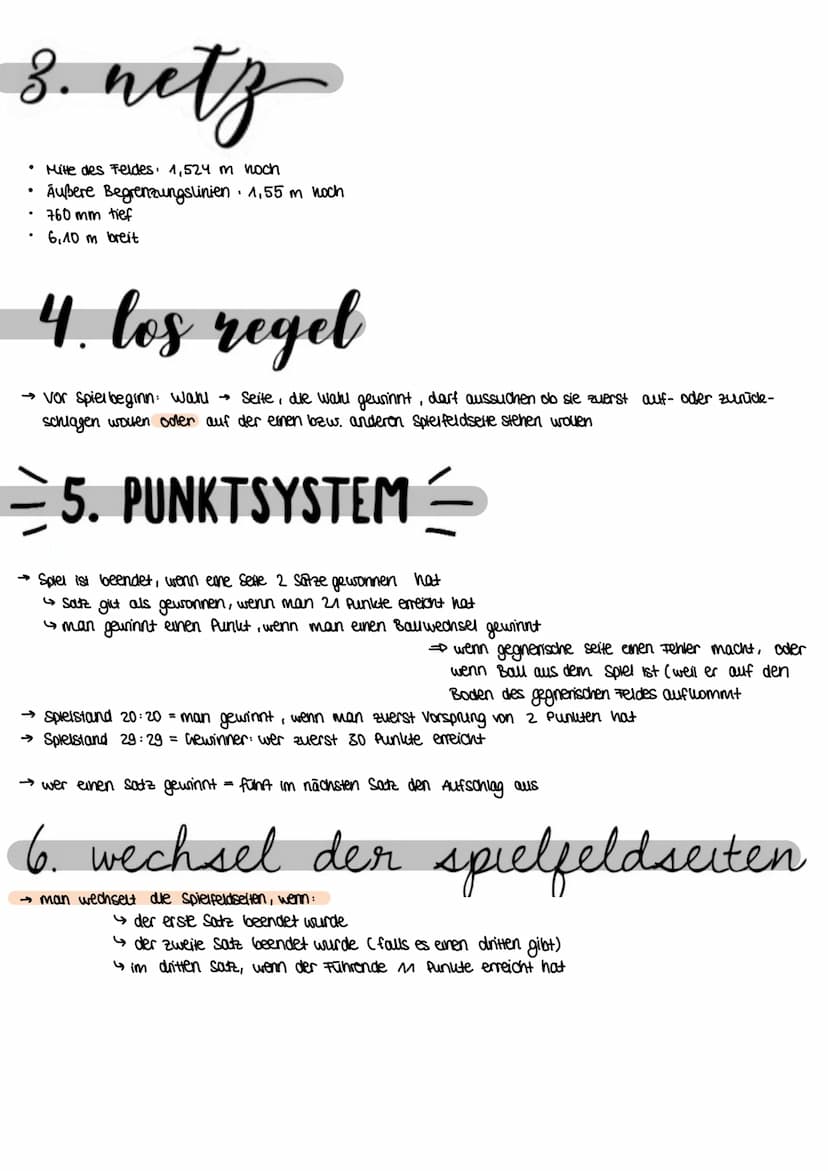 3. netz
• Mitte des Feldes: 1,524 m hoch
• Äußere Begrenzungslinien: 1,55 m hoch
• 760 mm tief
• 6,10 m breit
4. los regel
→ Vor Spielbeginn: Wahl → Seite, die Wahl gewinnt, darf aussuchen ob sie zuerst auf- oder zurück-
schlagen wollen oder auf der einen bzw. anderen Spielfeldseite stehen wollen
5. PUNKTSYSTEM
→ Spiel ist beendet, wenn eine Seite 2 Sätze gewonnen hat
↳ Satz gilt als gewonnen, wenn man 21 Punkte erreicht hat
↳ man gewinnt einen Punkt, wenn man einen Ballwechsel gewinnt
⇒ wenn gegnerische Seite einen Fehler macht, oder
wenn Ball aus dem Spiel ist (weil er auf den
Boden des gegnerischen Feldes aufkommt
→ Spielstand 20:20 = man gewinnt, wenn man zuerst Vorsprung von 2 Punkten hat
→ Spielstand 29:29 = Gewinner: wer zuerst 30 Punkte erreicht
→ wer einen Satz gewinnt = führt im nächsten Satz den Aufschlag aus
6. wechsel der spielfeldseiten
→ man wechselt die Spielfeldseiten, wenn:
↳ der erste Satz beendet wurde
↳ der zweite Satz beendet wurde (falls es einen dritten gibt)
↳ im dritten Satz, wenn der Führende 11 Punkte erreicht hat